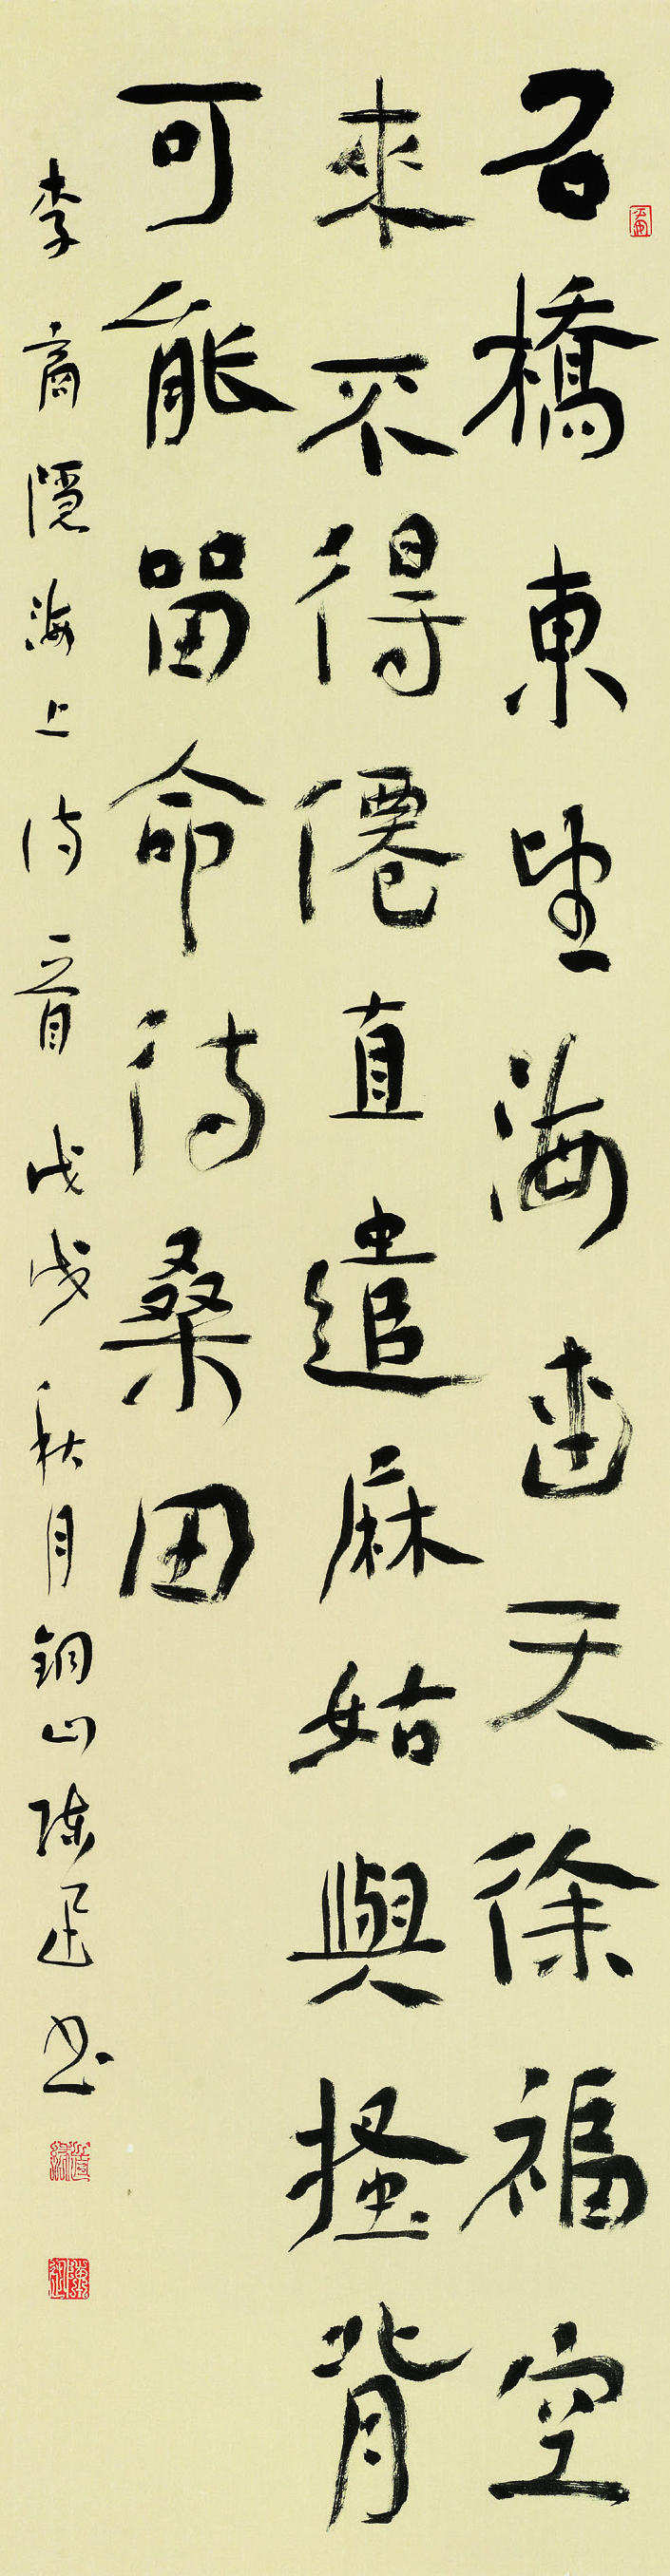 石橋東望海連天徐福空
來不得僊直遣麻姑與搔背
可能留命待桑田
李商隱海上詩一首戊戌秋月銅山陳書